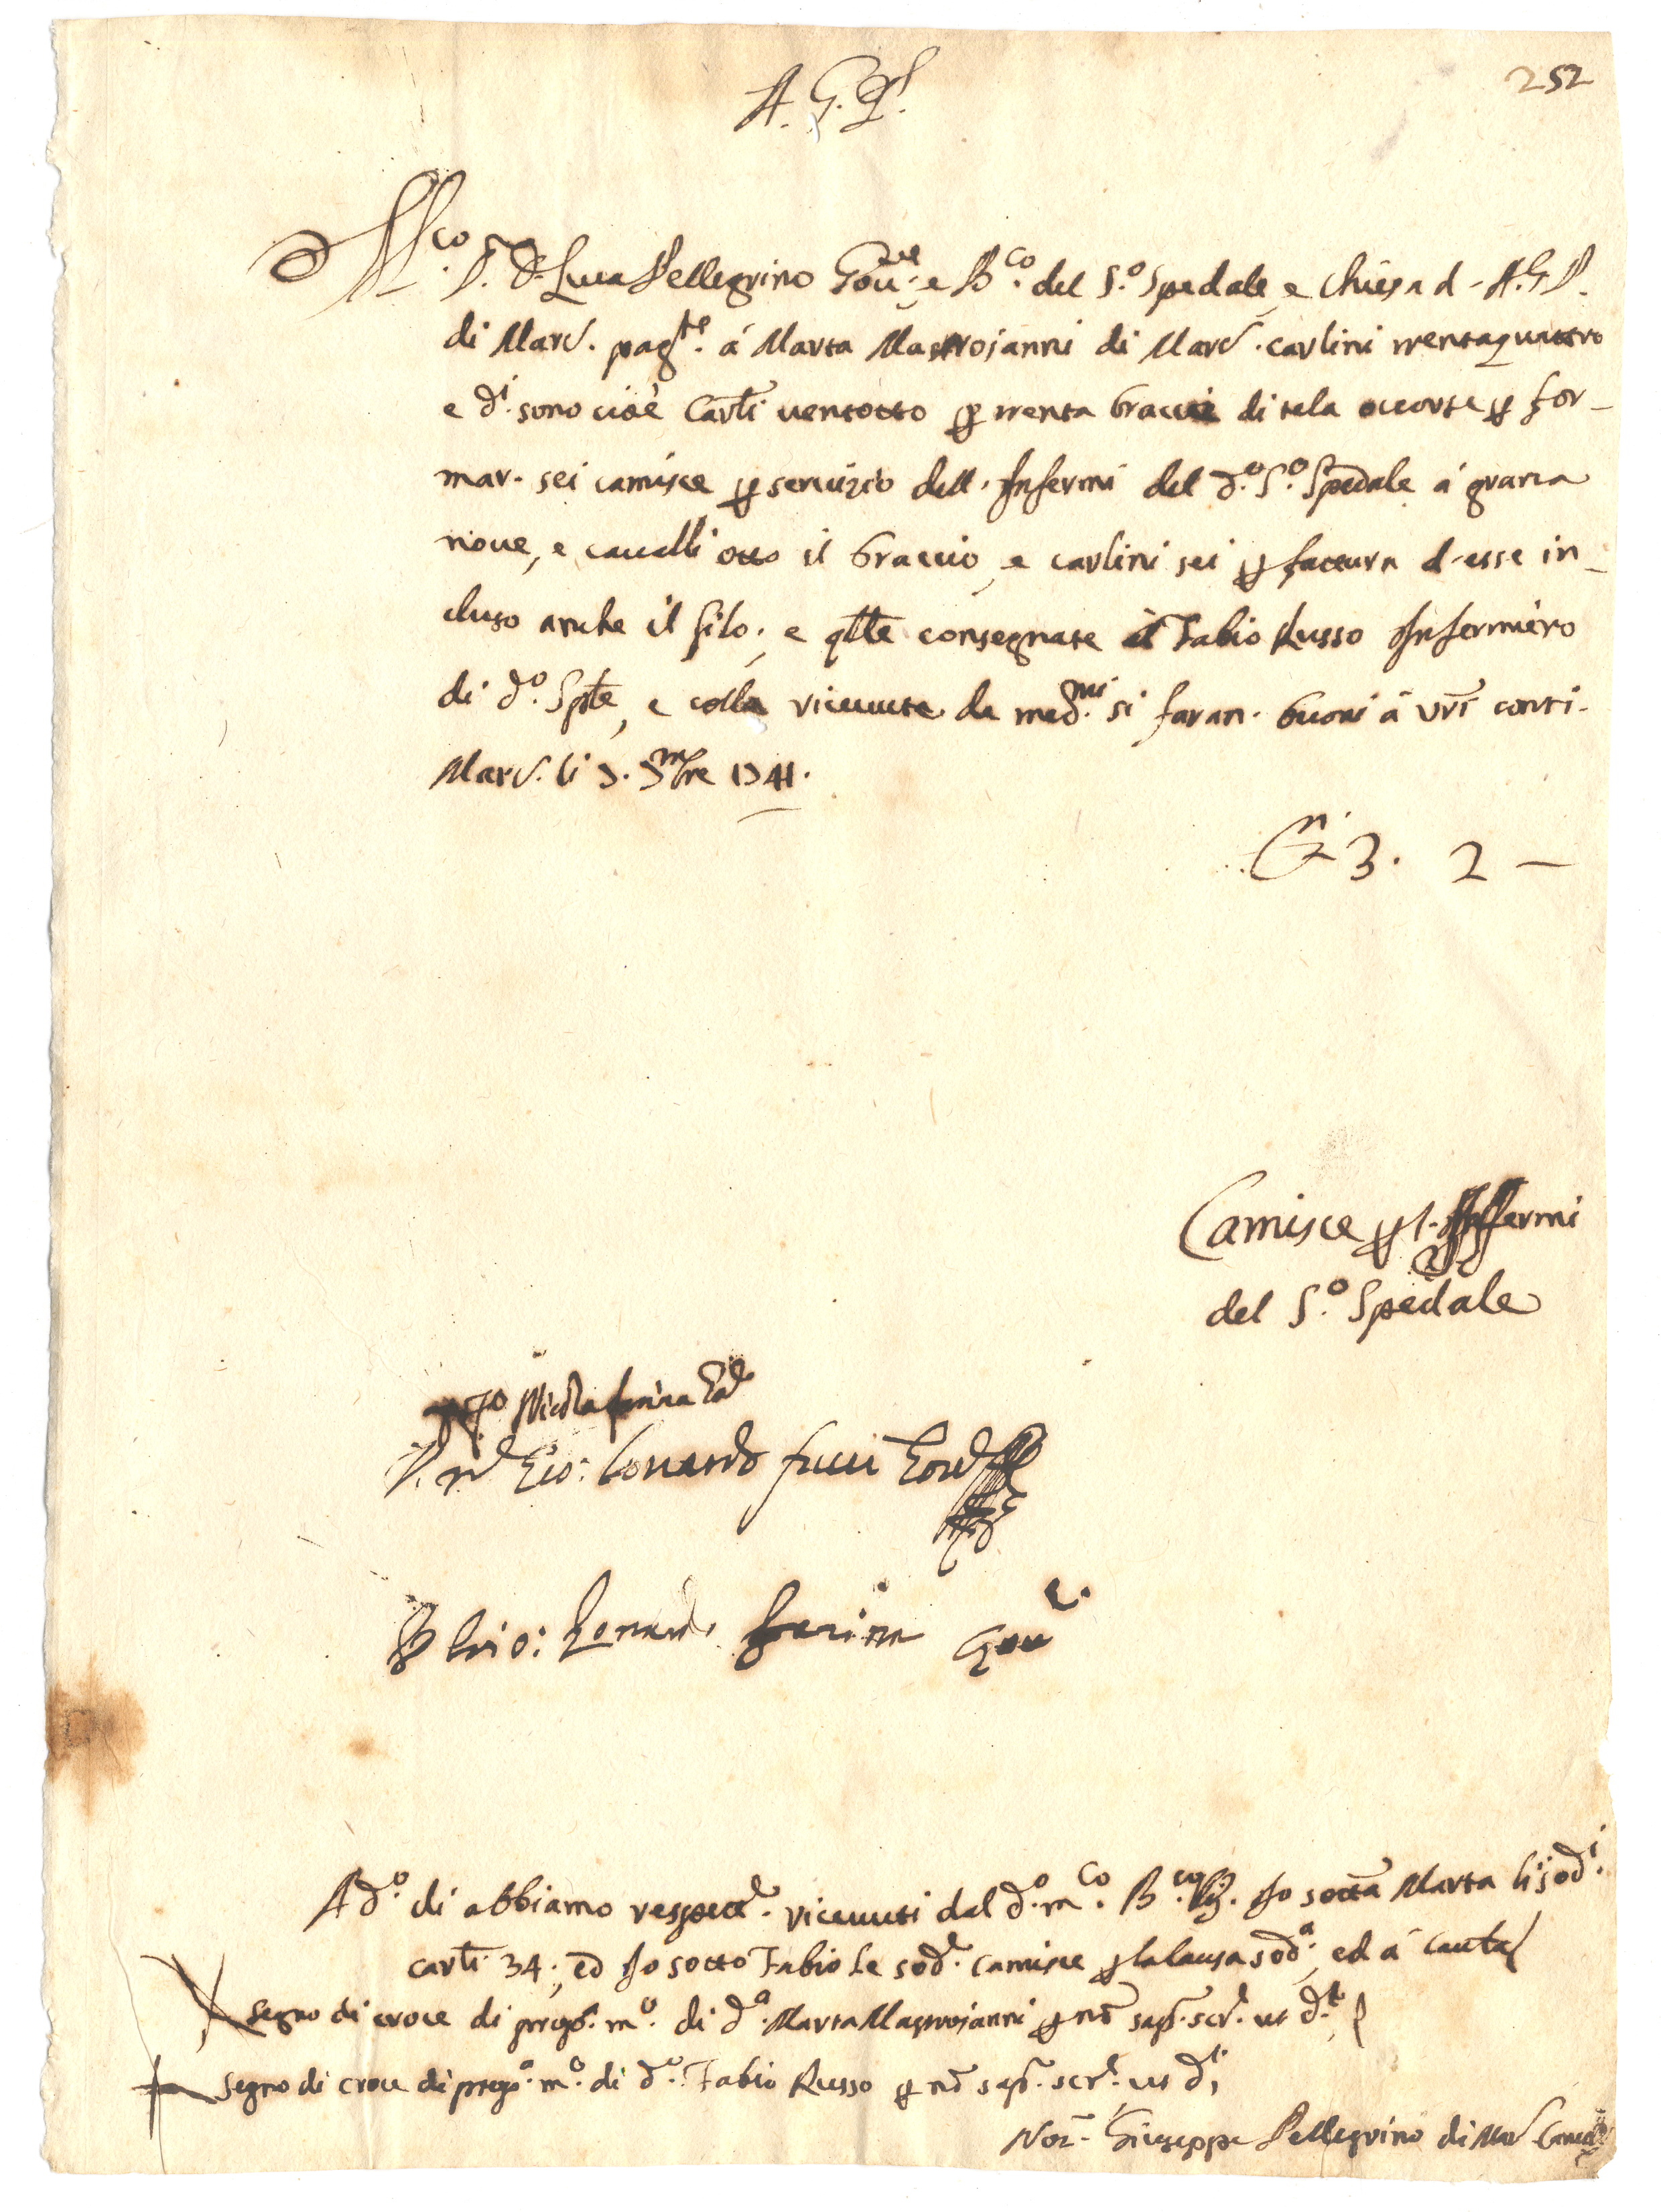 252
A. G. P.
M.co S.r D. Luca Pellegrino Gou.re e B.co del S.o Spedale, e Chiesa d. A.G.P.
di Marc. pag.te á Marta Mastrojanni di Marc. carlini trentaquattro
e d.i sono cioè Carli ventotto p trenta braccie di tela occorse p for-
mar. sei camisce p servizio dell. Infermi del d.o S.o Spedale á grana
nove, e cavalli otto il braccio, e carlini sei p fattura d. esse in-
cluso anche il filo; e qlle consegnate á Fabio Russo Infermiero
di d.o Sple, e colla ricevuta da med.mi si faran. buoni á vri conti.
Marc. li 7. 7mbre 1741.
3. 2 —
Camisce p l. Infermi
del S.o Spedale
Io Nicola farina
Gio: Lonardo fucci
Gio: Lonardo farina Gou.e
A d.o di abbiamo respett.e ricevuti dal d.o m.co B.co Io sotta Marta li sod.i
carli 34; ed Io sotto Fabio le sod.e camisce p la causa sod.a, ed á cautela
Segno di croce di prop.a m.o di d.a Marta Mastrojanni p no sap. scr.e ut d.r
Segno di croce di prop.a m.o di d.o Fabio Russo p no sap. scr.e ut d.r
Not. Giuseppe Pellegrino di Mar.